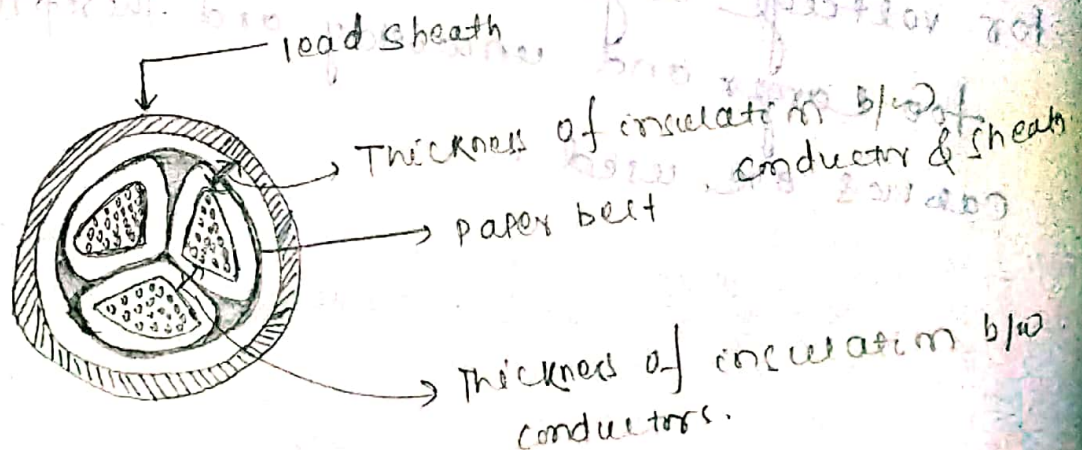 lead sheath
Thickness of insulation b/w
conductor & sheath
paper belt
Thickness of insulation b/w
conductors.